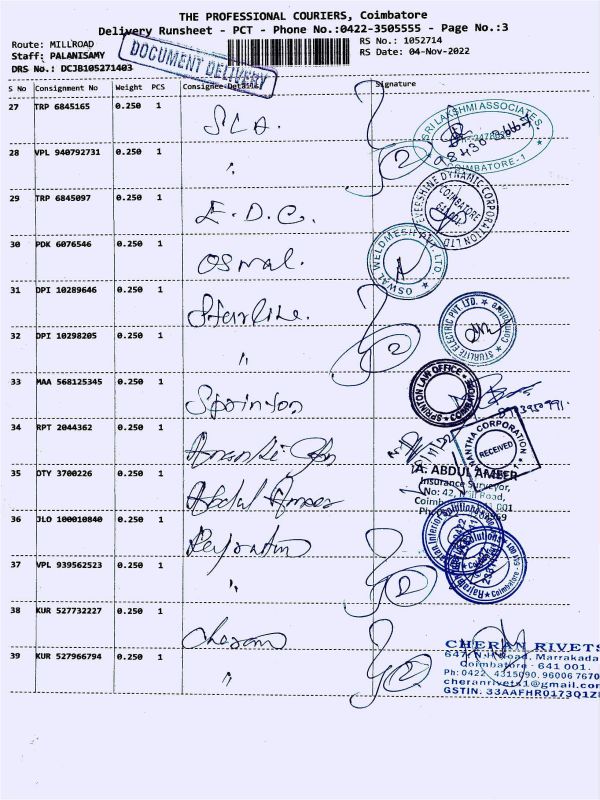 THE PROFESSIONAL COURIERS, Coimbatore
Delivery Runsheet - PCT - Phone No.:0422-3505555 - Page No.:3
Route: MILLROAD
RS No.: 1052714
Staff: PALANISAMY
RS Date: 04-Nov-2022
DRS No.: DCJB105271403
DOCUMENT DELIVERY
S No Consignment No Weight PCS Consignee Details Signature
27 TRP 6845165 0.250 1 SLA.
SRI LAKSHMI ASSOCIATES
COIMBATORE-1
28 VPL 940792731 0.250 1 "
2
29 TRP 6845097 0.250 1 E.D.C.
EVERSHINE DYNAMIC CORPORATION LTD
COIMBATORE
30 PDK 6076546 0.250 1 Oswal.
OSWAL WELDMESH PVT. LTD.
31 DPI 10289646 0.250 1 Starline.
STURLITE ELECTRIC PVT LTD. Coimbatore
32 DPI 10298205 0.250 1 "
2
33 MAA 568125345 0.250 1 Sprinton
SPRINTON LAW OFFICE COIMBATORE
34 RPT 2044362 0.250 1
ANANTHA CORPORATION
RECEIVED
35 DTY 3700226 0.250 1 Abdul Ameer
A. ABDUL AMEER
Insurance Surveyor,
No: 42, Mill Road,
36 JLO 100010840 0.250 1
37 VPL 939562523 0.250 1 "
2
38 KUR 527732227 0.250 1 Cheran
39 KUR 527966794 0.250 1 "
2
CHERAN RIVETS
Coimbatore - 641 001.
Ph: 0422 4315090, 96006 7670
cheranrivets1@gmail.com
GSTIN: 33AAFHR0173Q1Z